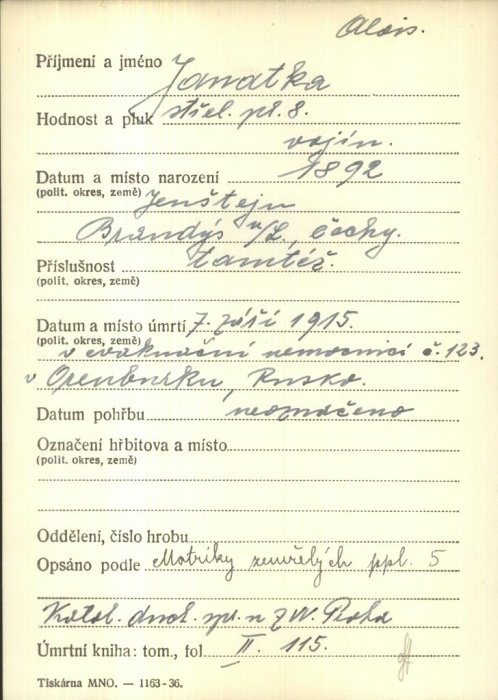 Alois.
Příjmení a jméno Janatka
Hodnost a pluk střel. pl. 8.
vojín.
Datum a místo narození 1892
(polit. okres, země) Jenštejn
Brandýs n/L., Čechy.
Příslušnost tamtéž.
(polit. okres, země)
Datum a místo úmrtí 7. září 1915.
(polit. okres, země) v evakuační nemocnici č. 123.
v Orenburku, Rusko.
Datum pohřbu neoznačeno
Označení hřbitova a místo
(polit. okres, země)
Oddělení, číslo hrobu
Opsáno podle Matriky zemřelých ppl. 5
Katol. duch. spr. n ZVV. Praha
Úmrtní kniha: tom., fol. II. 115.
Tiskárna MNO. — 1163-36.